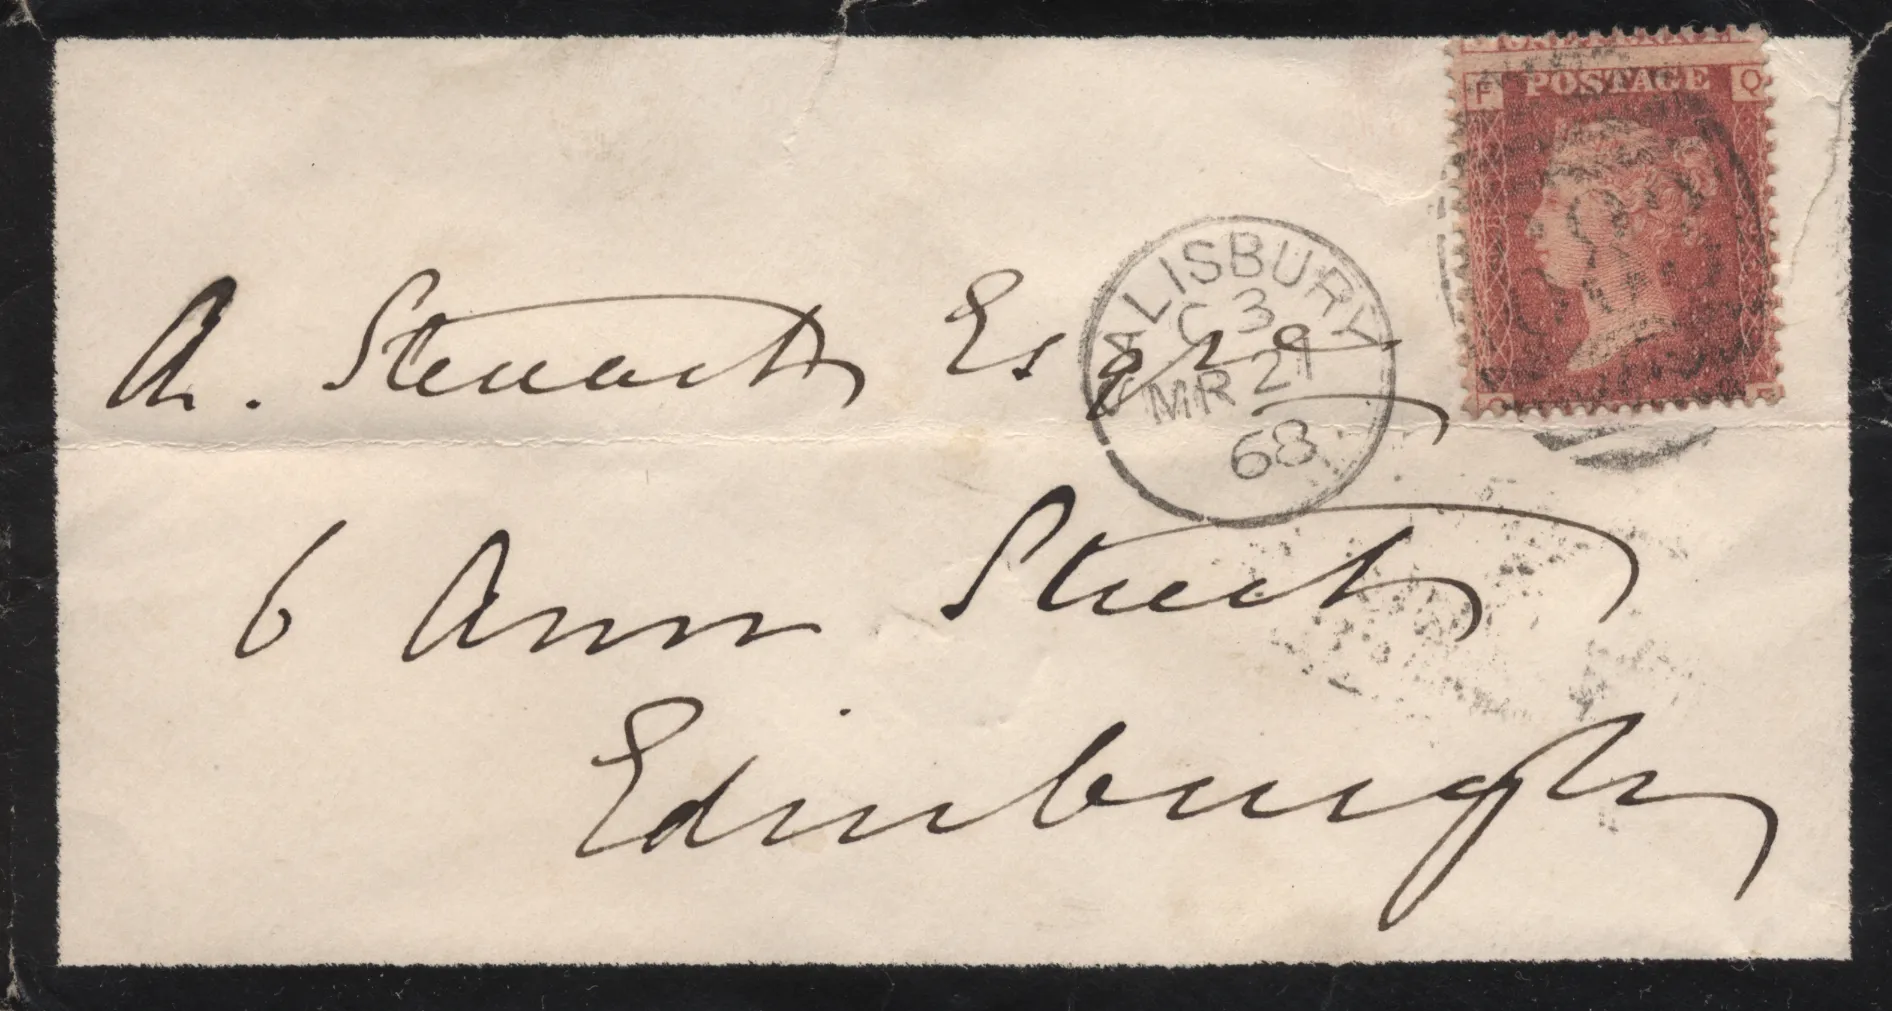 POSTAGE
F Q
SALISBURY
C 3
MR 21
68
A. Steuart Esqre
6 Ann Street
Edinburgh